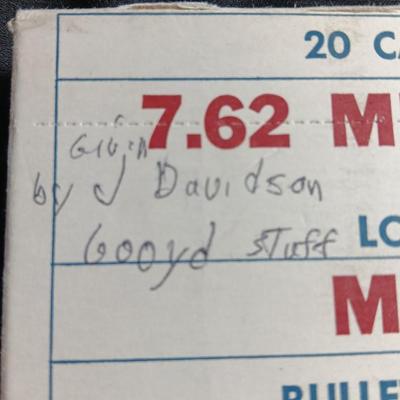 20 CA
7.62 M
Givin
by J Davidson
Gooyd Stuff LO
M
BULLE